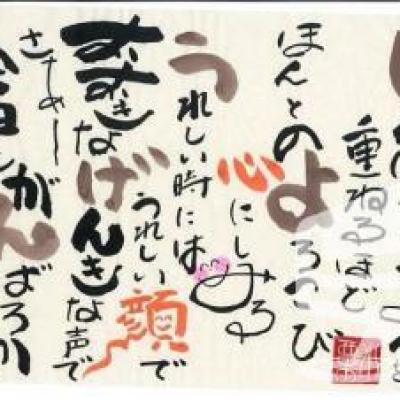 重ねるほど
ほんとのよろこび
心にしみる
うれしい時には
うれしい顔で
おおきなげんきな声で
さあー
今日もがんばろか